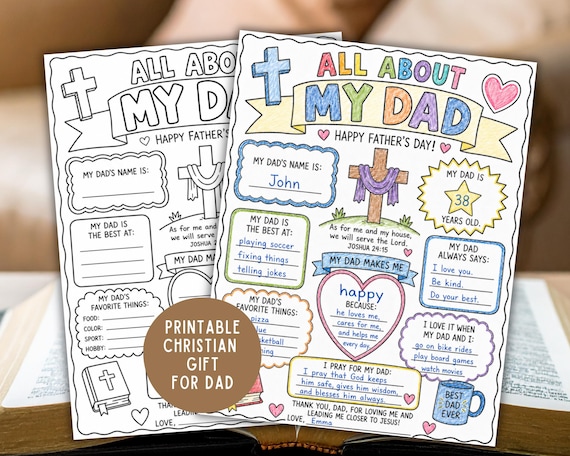 ALL ABOUT
MY DAD
HAPPY FATHER'S
MY DAD'S NAME IS:
MY DAD IS
THE BEST AT:
As for me and my
we will serve the
JOSHUA 24:15
MY DAD MAKES
MY DAD'S
FAVORITE THINGS:
FOOD:
COLOR:
SPORT:
HOBBY:
I
THANK YOU,
LEADING
LOVE,
PRINTABLE
CHRISTIAN
GIFT
FOR DAD
ALL ABOUT
MY DAD
HAPPY FATHER'S DAY!
MY DAD'S NAME IS:
John
MY DAD IS
38
YEARS OLD.
MY DAD IS
THE BEST AT:
playing soccer
fixing things
telling jokes
As for me and my house,
we will serve the Lord.
JOSHUA 24:15
MY DAD
ALWAYS SAYS:
I love you.
Be kind.
Do your best.
MY DAD MAKES ME
happy
BECAUSE:
he loves me,
cares for me,
and helps me
every day.
MY DAD'S
FAVORITE THINGS:
pizza
blue
basketball
fishing
I LOVE IT WHEN
MY DAD AND I:
go on bike rides
play board games
watch movies
I PRAY FOR MY DAD:
I pray that God keeps
him safe, gives him wisdom,
and blesses him always.
BEST
DAD
EVER
THANK YOU, DAD, FOR LOVING ME AND
LEADING ME CLOSER TO JESUS!
LOVE, Emma